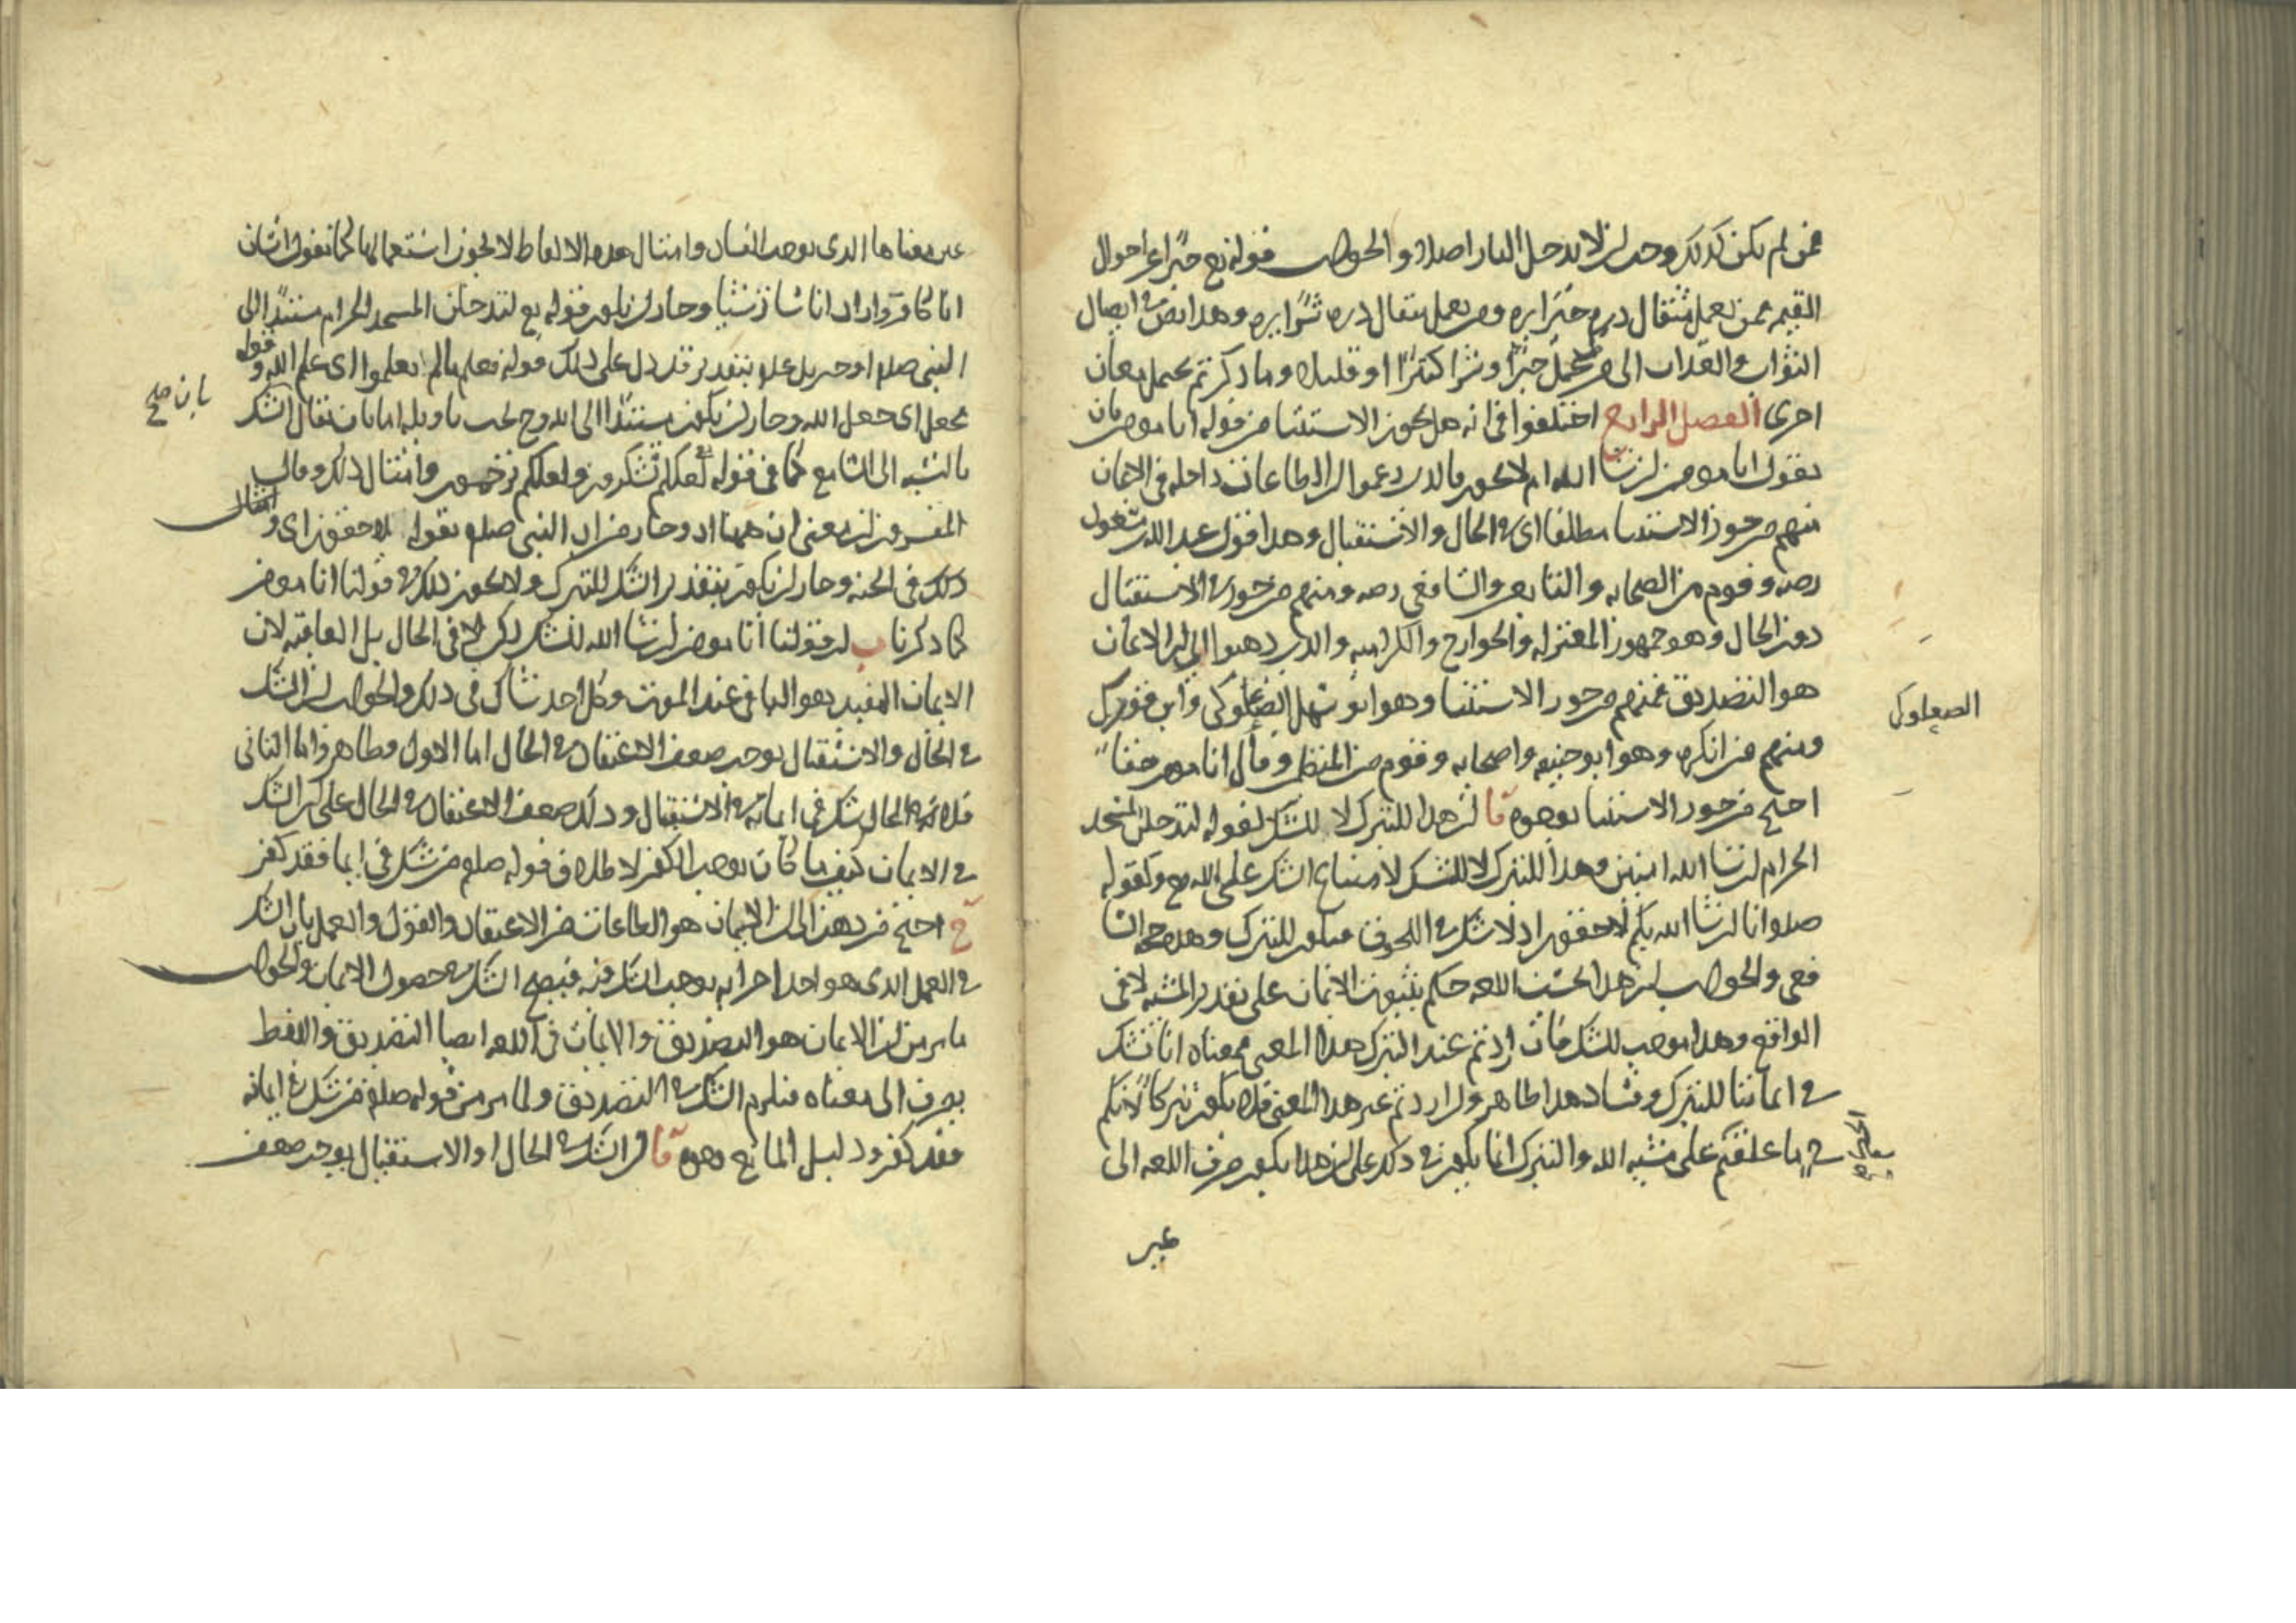 فمن لم يكن كذلك وجب ان لا يدخل النار اصلا والجواب قوله تع خبرا عن احوال
القيمه فمن يعمل مثقال ذره خيرا يره ومن يعمل مثقال ذره شرا يره وهذا نص في ايصال
الثواب والعذاب الى من عمل خيرا وشرا كثيرا او قليلا وما ذكرتم يحتمل معان
اخرى الفصل الرابع اختلفوا في انه هل يجوز الاستثنا من قوله انا مومن بان
يقول انا مومن ان شا الله ام لا يجوز فالذين زعموا ان الطاعات داخله في الايمان
منهم من جوز الاستثنا مطلقا اى في الحال والاستقبال وهذا قول عبد الله بن مسعود
رضه وقوم من الصحابه والتابعين والشافعى رضه ومنهم من جوز في الاستقبال
دون الحال وهو جمهور المعتزله والخوارج والكراميه والذين ذهبوا الى ان الايمان
هو التصديق فمنهم من جوز الاستثنا وهو ابو سهل الصعلوكى وابن فورك
ومنهم من انكره وهو ابو حنيفه واصحابه وقوم من المتكلمين وقال انا مومن حقا
احتج من جوز الاستثنا بوجوه ا ان هذا للتبرك لا للشك لقوله لتدخلن المسجد
الحرام ان شا الله امنين وهذا للتبرك لا للشك لامتناع الشك على الله تع وكقوله
صلعم وانا ان شا الله بكم لاحقون اذ لا شك في اللحوق فيكون للتبرك وهذا حجه الشا
فعى والجواب ان هذا بحسب اللغه حكم بثبوت الايمان على تقدير المشيه لا فى
الواقع وهذا موجب للشك فان اردتم عند التبرك هذا المعنى فمعناه انا نشك
في ايماننا للتبرك وفساد هذا ظاهر وان اردتم غير هذا المعنى فلا يكون تبركا لانكم
في ما علقتم على مشيه الله والتبرك انما يكون في ذلك على ان هذا يكون صرف اللغه الى
غير
الصعلوكى
غير معناها الذى يوجب الفساد وامثال هذه الالفاظ لا يجوز استعمالها كما تقول انسان
انا كافر واراد انا شا ترشيا وجاز ان يكون قوله تع لتدخلن المسجد الحرام مستندا الى
النبى صلعم او جبريل عليه بتقدير قد دل على ذلك قوله فعلم ما لم تعلموا اى علم الله وقوله
فجعل اى جعل الله وجاز ان يكون مستندا الى الله وح يجب تاويله اما بان يقال الشك
بان صح
بالنسبه الى السامع كما في قوله لعلكم تشكرون ولعلكم ترحمون وامثال ذلك وقال
المفسرون ان بمعنى ان ههنا اذ وجاز من ان النبى صلعم بقوله لاحقون اى وامثال
ذلك في الجنه وجاز ان يكون بتقدير الشك للتبرك ولا يجوز ذلك في قولنا انا مومن
كما ذكرنا ب ان قولنا انا مومن ان شا الله للشك لكن لا في الحال بل العاقبه لان
الايمان المفيد هو الباقى عند الموت وكل احد شاك في ذلك والجواب ان الشك
في الحال والاستقبال يوجب ضعف الاعتقاد في الحال اما الاول فظاهر واما الثانى
فلانه في الحال شك في ايمانه في الاستقبال وذلك ضعف الاعتقاد في الحال على ان الشك
في الايمان كيف ما كان يوجب الكفر لاطلاق قوله صلعم من شك في ايمانه فقد كفر
ج احتج من ذهب الى ان الايمان هو الطاعات من الاعتقاد والقول والعمل بان الشك
في العمل الذى هو احد اجزائه يوجب الشك فيه فيصح الشك في حصول الايمان والجواب
ما مر من ان الايمان هو التصديق والايمان في اللغه ايضا التصديق واللفظ
يصرف الى معناه فيلزم الشك في التصديق ولما مر من قوله صلعم من شك في ايمانه
فقد كفر ودليل المانع وجوه ا ان الشك في الحال او الاستقبال يوجب ضعف